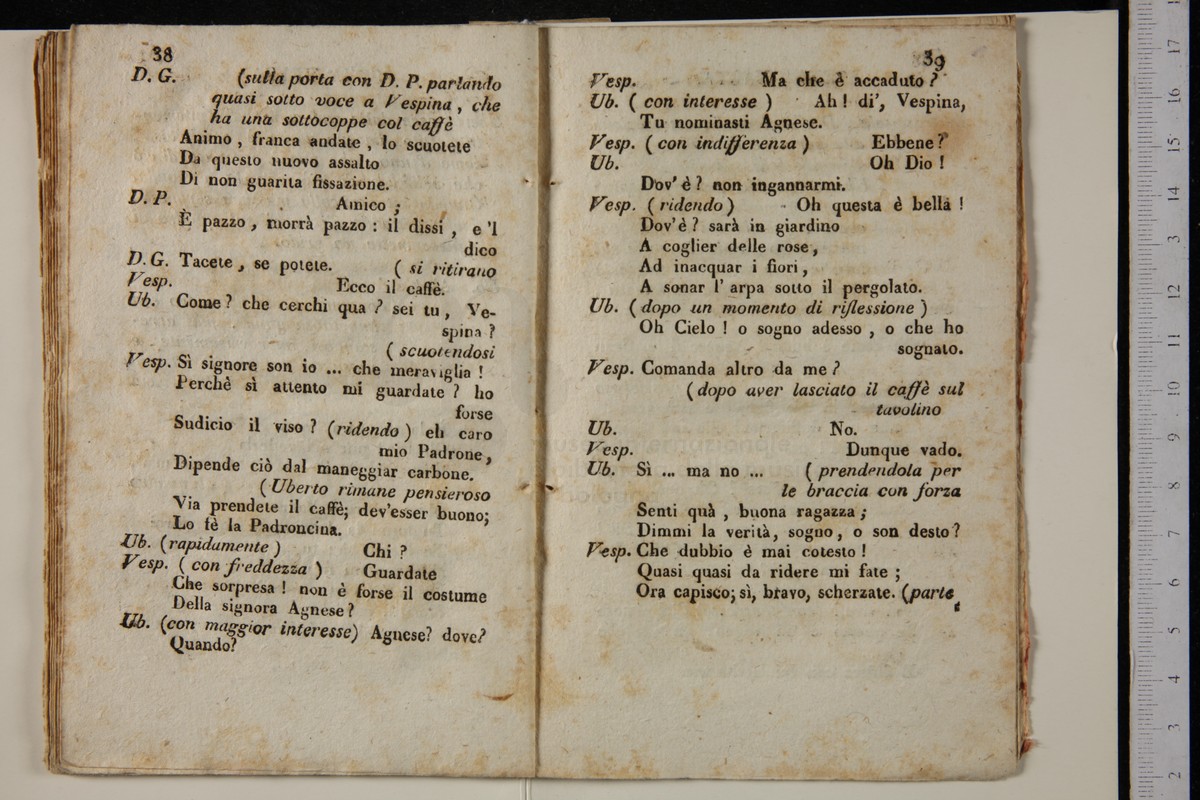 38
D. G. (sulla porta con D. P. parlando
quasi sotto voce a Vespina, che
ha una sottocoppe col caffè
Animo, franca andate, lo scuotete
Da questo nuovo assalto
Di non guarita fissazione.
D. P. Amico;
È pazzo, morrà pazzo: il dissi, e 'l
dico
D. G. Tacete, se potete. (si ritirano
Vesp. Ecco il caffè.
Ub. Come? che cerchi qua? sei tu, Ve-
spina?
(scuotendosi
Vesp. Sì signore son io ... che meraviglia!
Perchè sì attento mi guardate? ho
forse
Sudicio il viso? (ridendo) eh caro
mio Padrone,
Dipende ciò dal maneggiar carbone.
(Uberto rimane pensieroso
Via prendete il caffè; dev'esser buono;
Lo fè la Padroncina.
Ub. (rapidamente) Chi?
Vesp. (con freddezza) Guardate
Che sorpresa! non è forse il costume
Della signora Agnese?
Ub. (con maggior interesse) Agnese? dove?
Quando?
39
Vesp. Ma che è accaduto?
Ub. (con interesse) Ah! di', Vespina,
Tu nominasti Agnese.
Vesp. (con indifferenza) Ebbene?
Ub. Oh Dio!
Dov'è? non ingannarmi.
Vesp. (ridendo) - Oh questa è bella!
Dov'è? sarà in giardino
A coglier delle rose,
Ad inacquar i fiori,
A sonar l'arpa sotto il pergolato.
Ub. (dopo un momento di riflessione)
Oh Cielo! o sogno adesso, o che ho
sognato.
Vesp. Comanda altro da me?
(dopo aver lasciato il caffè sul
tavolino
Ub. No.
Vesp. Dunque vado.
Ub. Sì ... ma no ... (prendendola per
le braccia con forza
Senti quà, buona ragazza;
Dimmi la verità, sogno, o son desto?
Vesp. Che dubbio è mai cotesto!
Quasi quasi da ridere mi fate;
Ora capisco; sì, bravo, scherzate. (parte
17
16
15
14
13
12
11
10
9
8
7
6
5
4
3
2